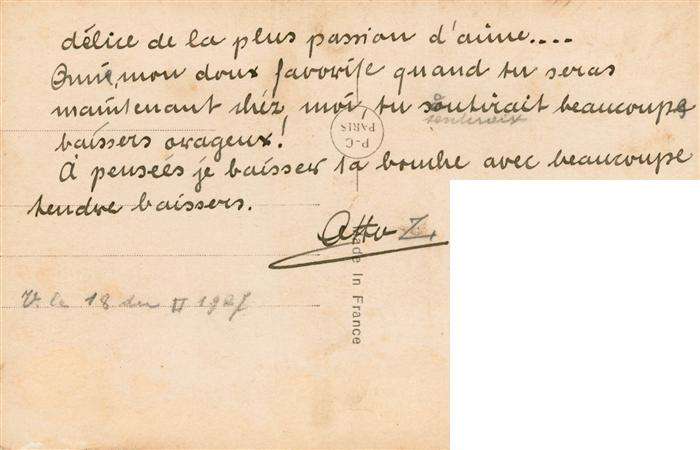 délice de la plus passion d'aime....
Omie, mon doux favorise quand tu seras
maintenant chéz, moi, tu soutirait beaucoupe
sentirait
baissers orageux!
P-C
PARIS
À penseés je baisser ta bouche avec beaucoupe
tendre baissers.
Otto Z.
Made In France
V. le 18 du II 192